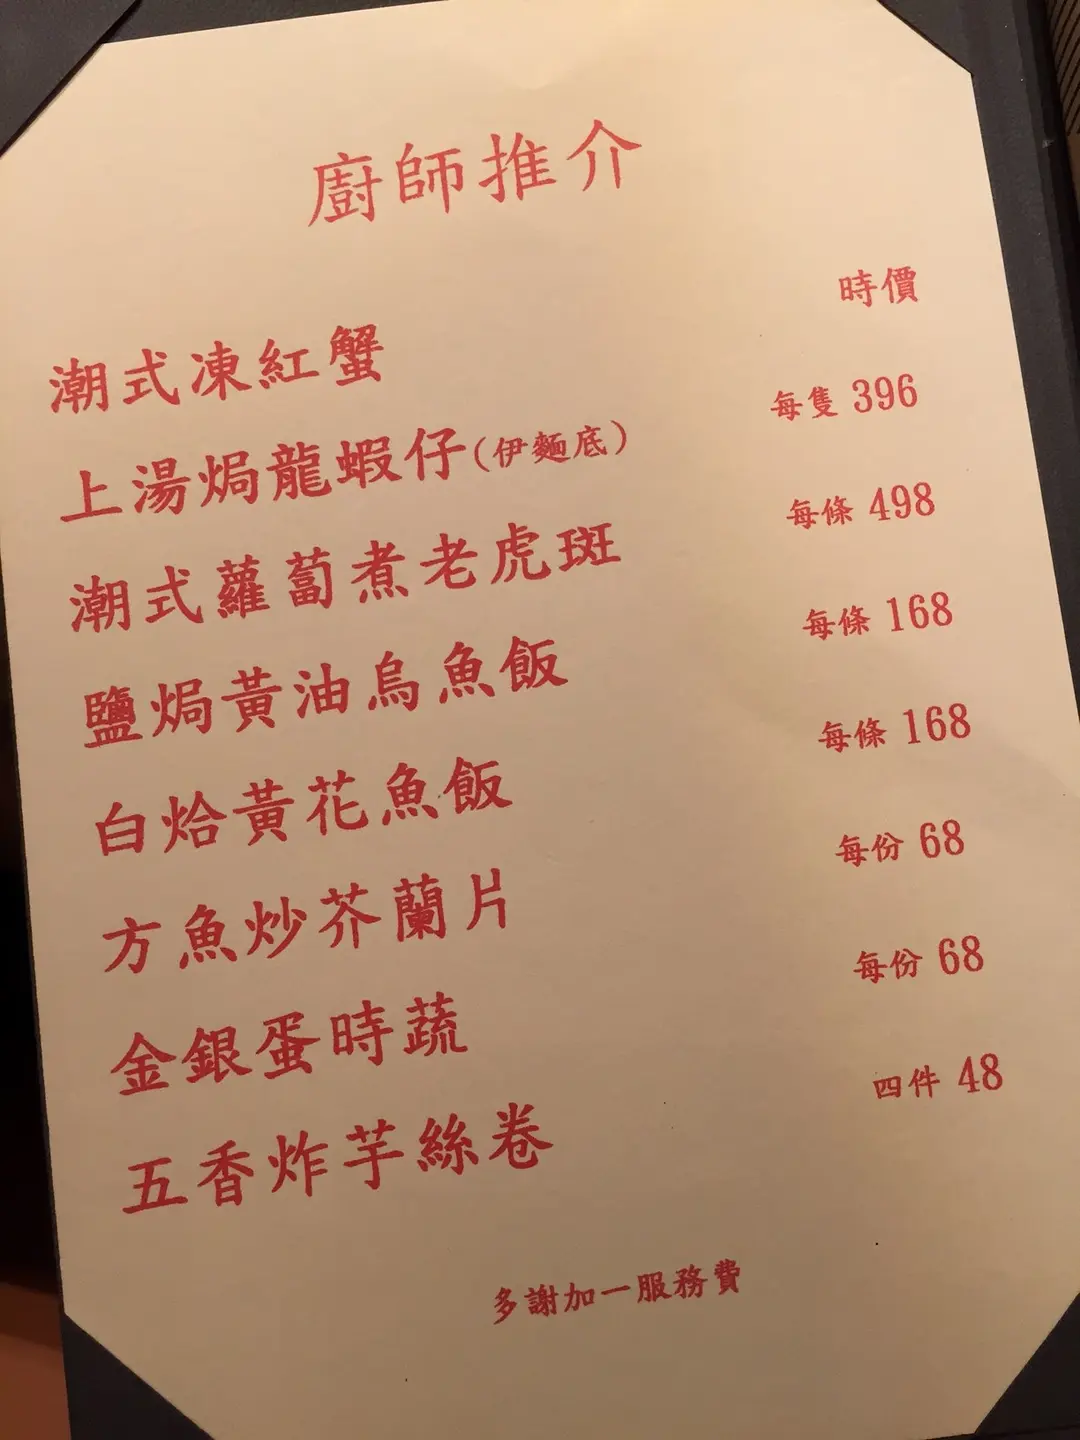 廚師推介
潮式凍紅蟹 時價
上湯焗龍蝦仔(伊麵底) 每隻 396
潮式蘿蔔煮老虎斑 每條 498
鹽焗黃油烏魚飯 每條 168
白烚黃花魚飯 每條 168
方魚炒芥蘭片 每份 68
金銀蛋時蔬 每份 68
五香炸芋絲卷 四件 48
多謝加一服務費